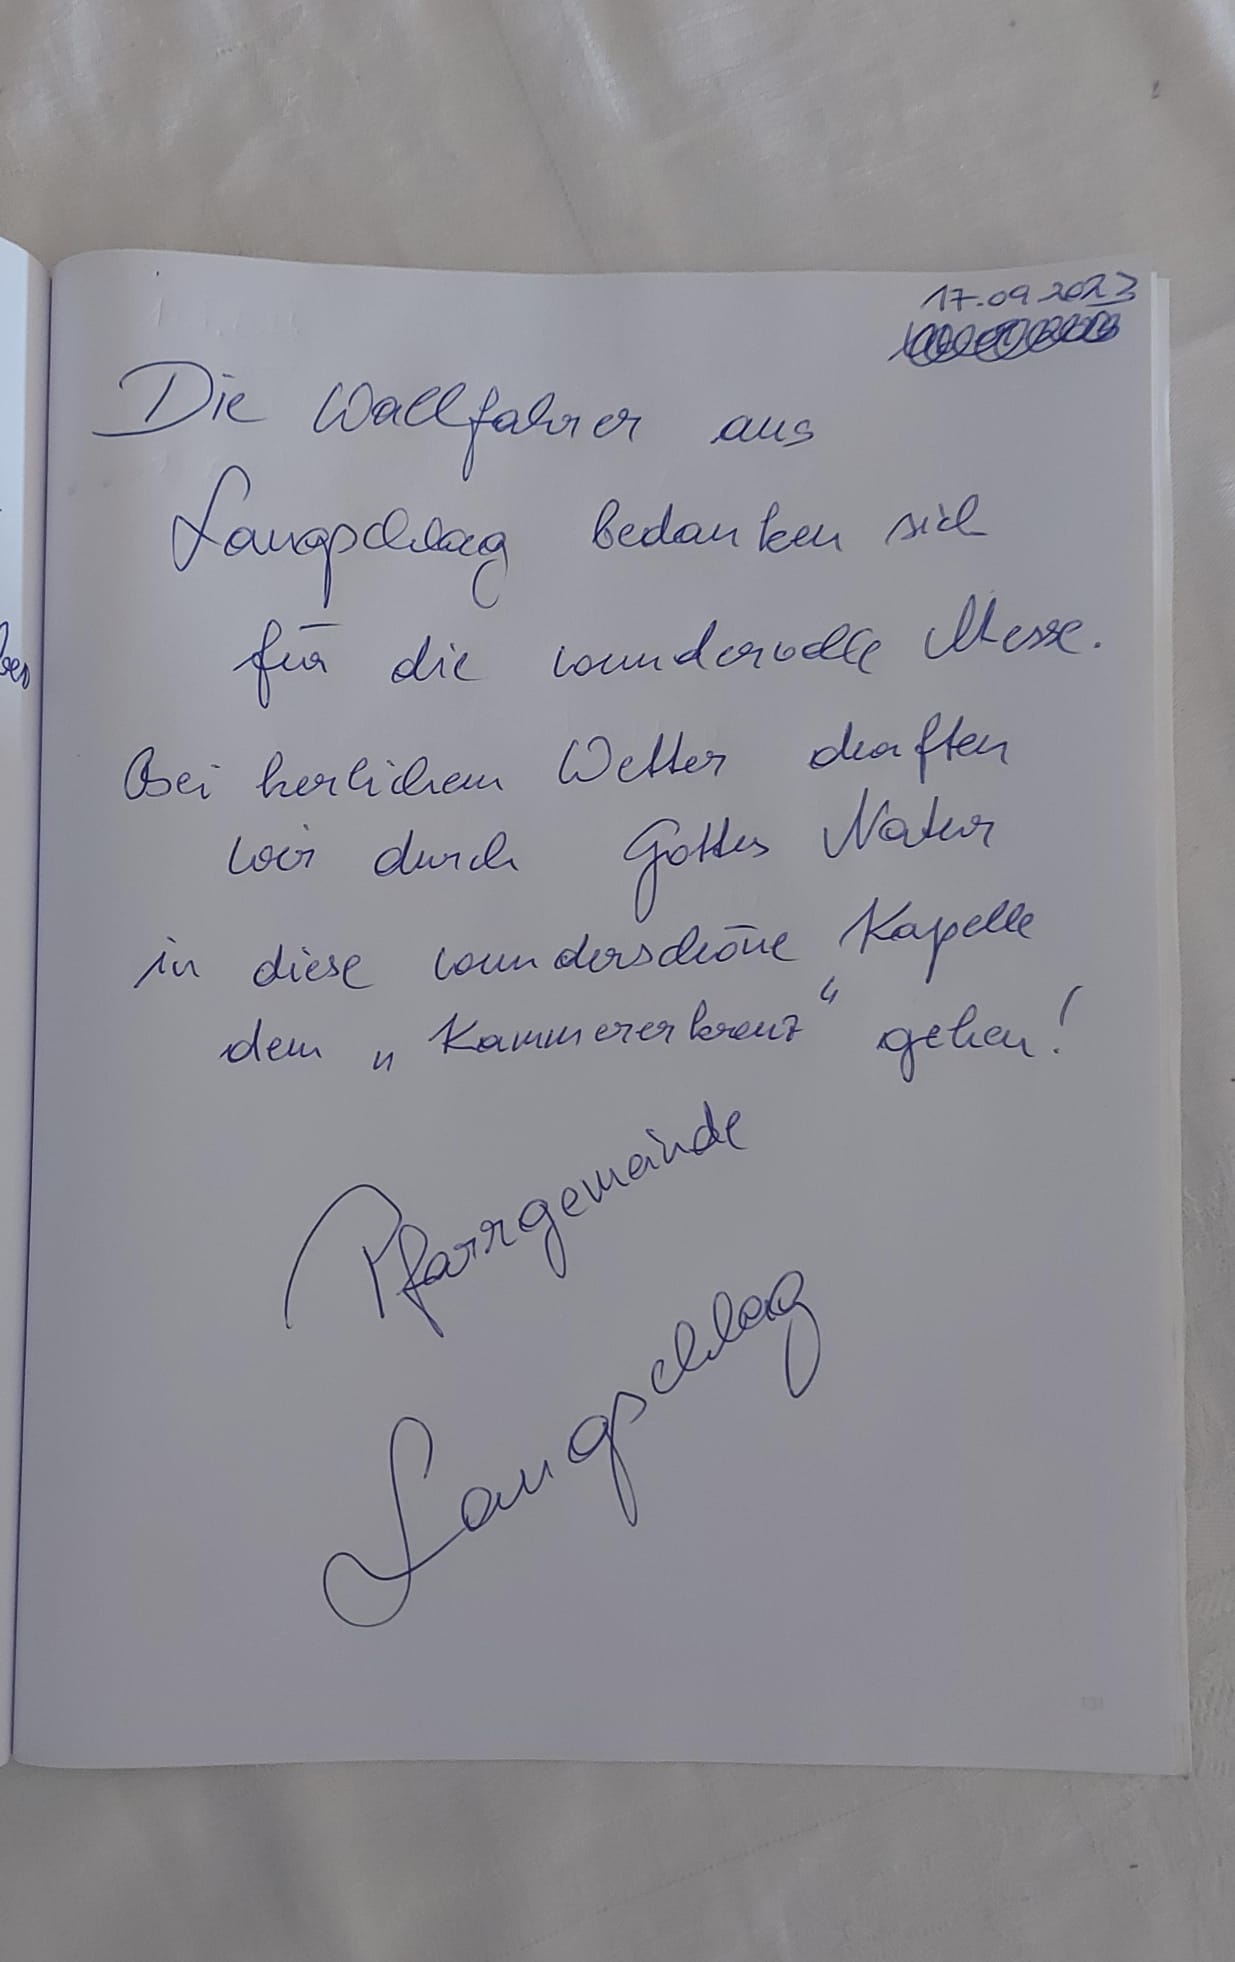 17.09.2023
Die Wallfahrer aus
Langschlag bedanken sich
für die wundervolle Messe.
Bei herlichem Wetter durften
wir durch Gottes Natur
in diese wunderschöne Kapelle
dem „Kammererkreuz“ gehen!
Pfarrgemeinde
Langschlag
131